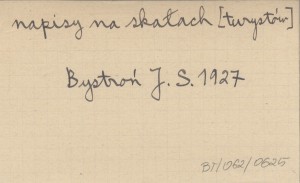 napisy na skałach [turystów]
Bystroń J. S. 1927
BT/062/0625